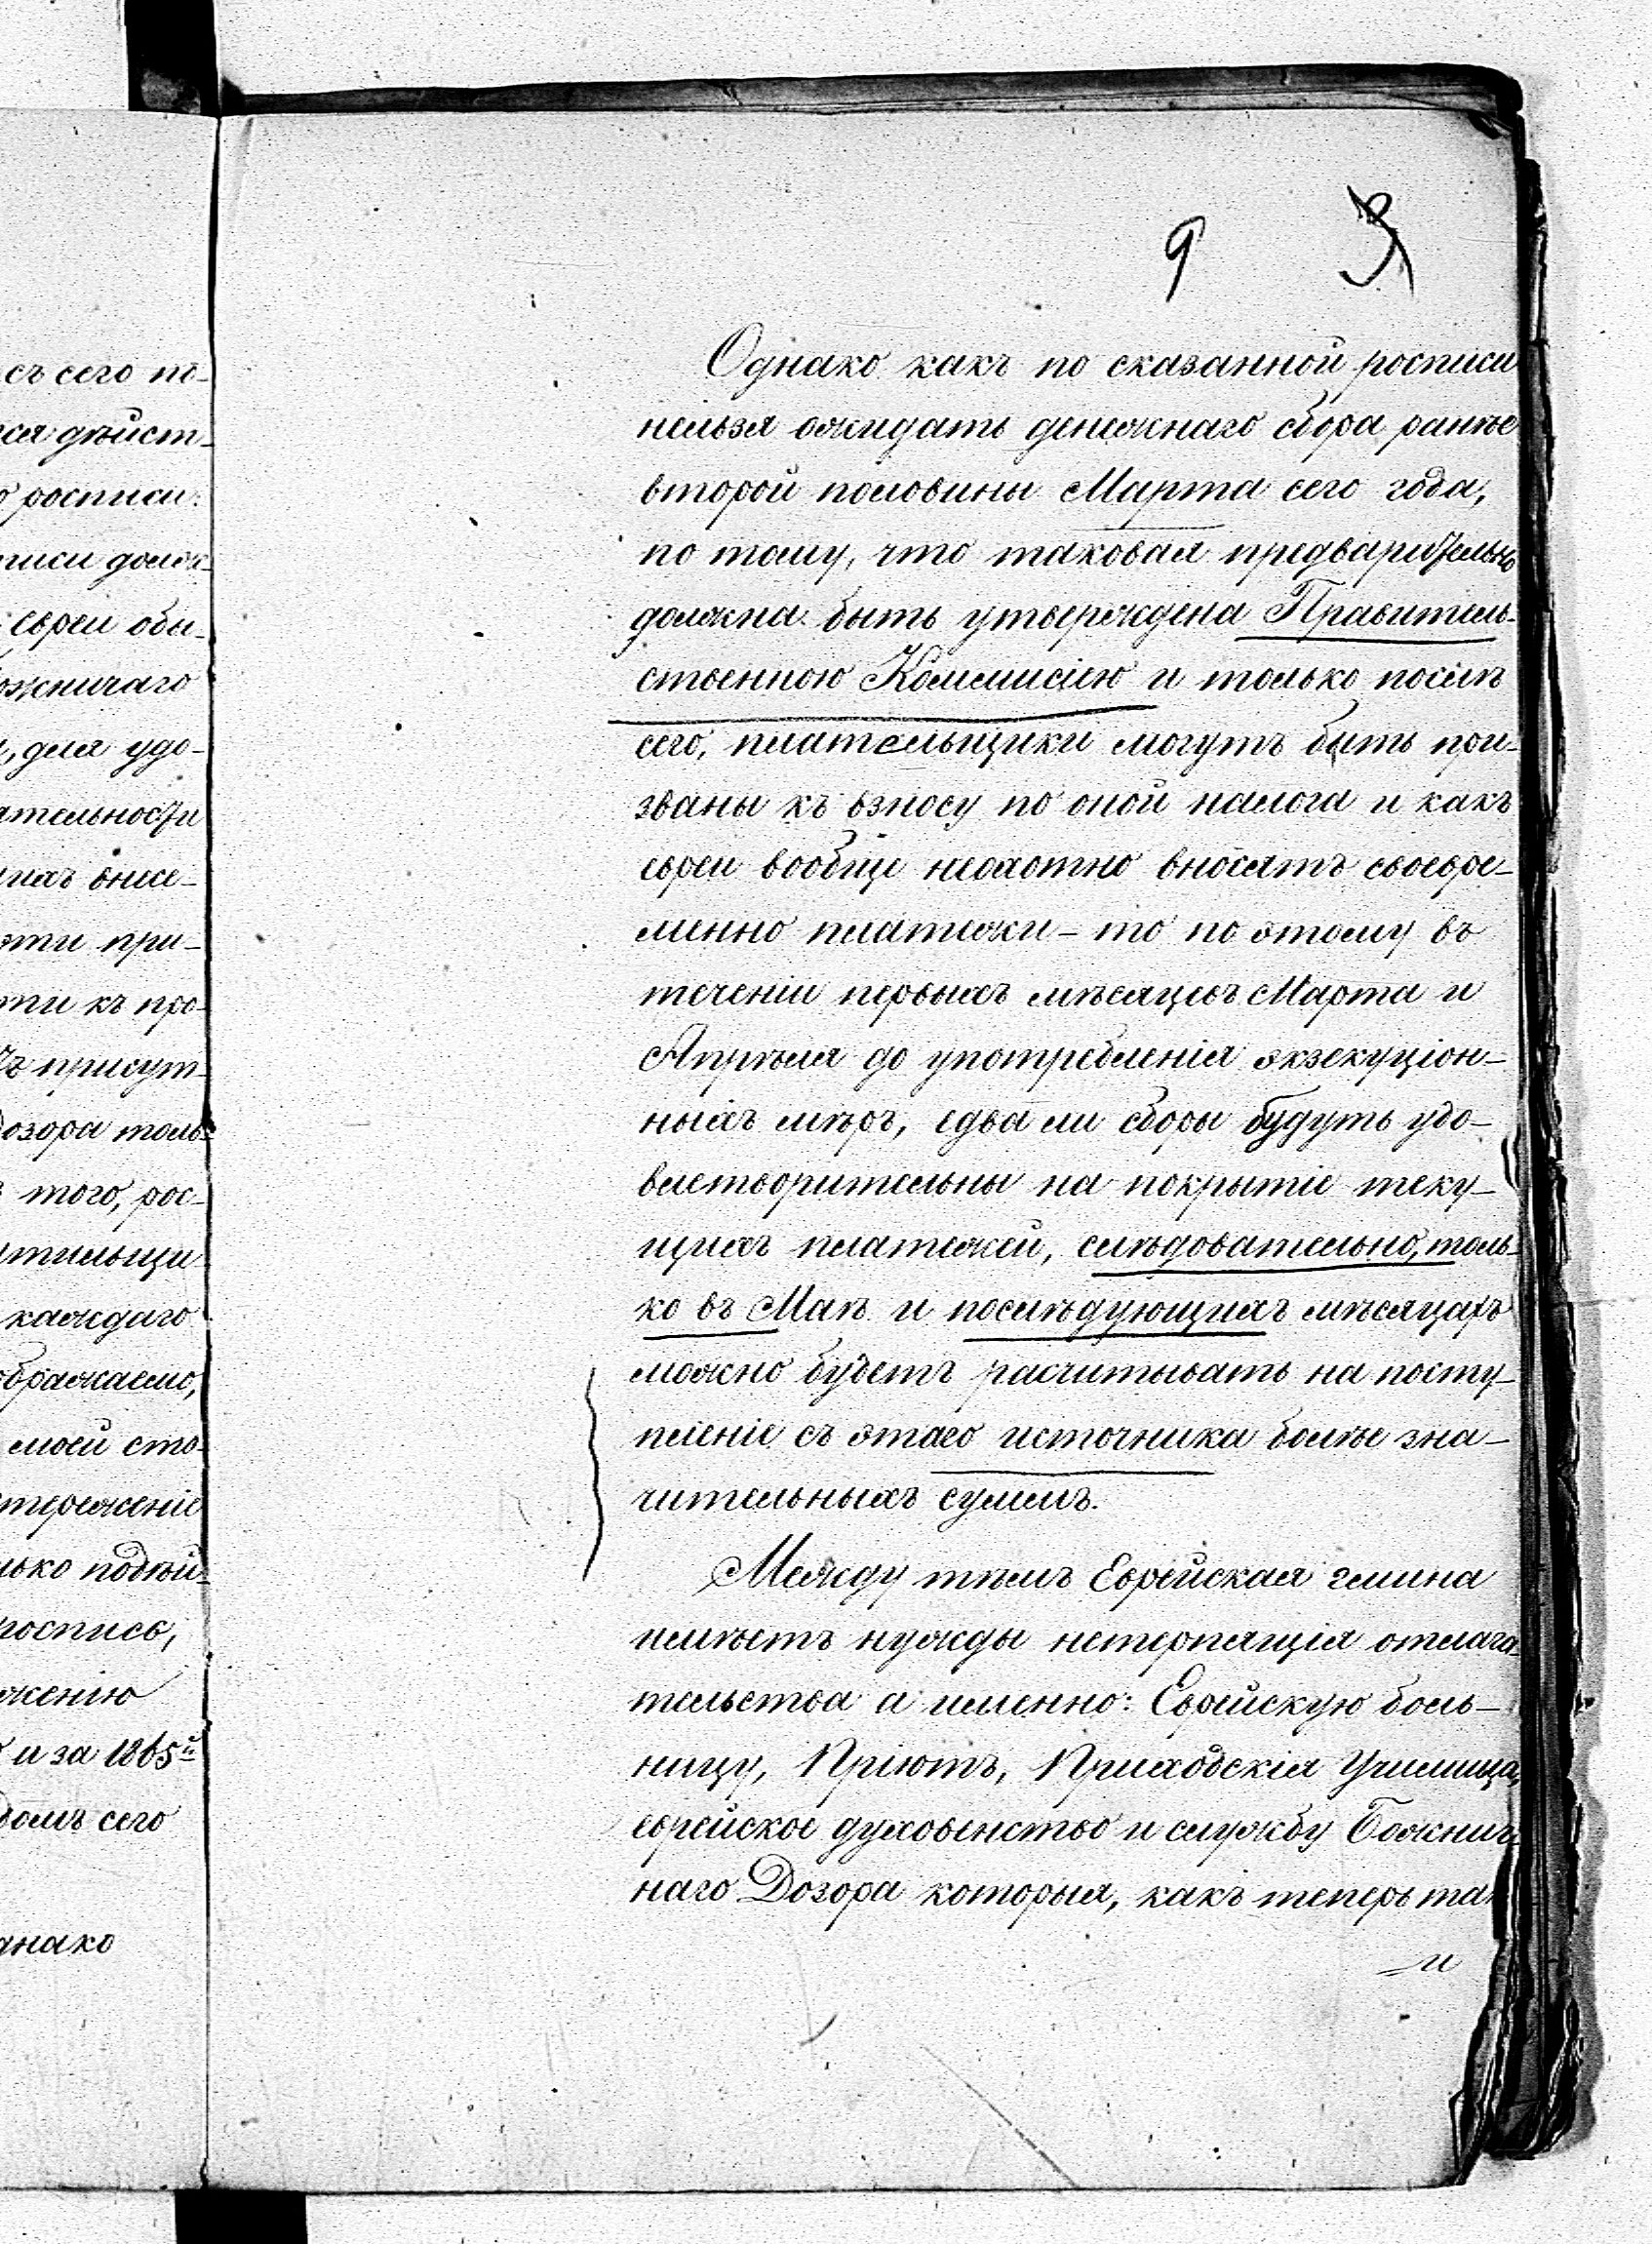 съ сего по-
ся дѣйст-
росписи.
писи долж-
евреи обы-
ожничаго
, для удо-
ательности
ихъ внесе-
эти при-
ти къ про-
присут-
Дозора толь-
того, рос-
ательщи-
каждаго
ображаемо,
моей сто-
стереженіе
лько
роспись,
женію
и за 1865й
домъ сего
днако
9 3
Однако какъ по сказанной росписи
нельзя ожидать денежнаго сбора ранѣе
второй половины Марта сего года,
по тому, что таковая предварительно
должна быть утверждена Правитель-
ственною Коммисіею и только послѣ
сего, плательщики могутъ быть при-
званы къ взносу по оной налога и какъ
евреи вообще неохотно вносятъ своевре-
менно платежи - то по этому въ
теченіи первыхъ мѣсяцевъ Марта и
Апрѣля до употребленія экзекуціон-
ныхъ мѣръ, едва ли сборы будутъ удо-
влетворительны на покрытіе теку-
щихъ платежей, слѣдовательно, толь-
ко въ Маѣ и послѣдующихъ мѣсяцахъ
можно будетъ расчитывать на посту-
пленіе съ этаго источника болѣе зна-
чительныхъ суммъ.
Между тѣмъ Еврейская гмина
имѣетъ нужды нетерпящія отлага-
тельства а именно: Еврейскую боль-
ницу, Пріютъ, Приходскія Училища,
еврейское духовенство и службу Божнич-
наго Дозора которыя, какъ теперь так
и